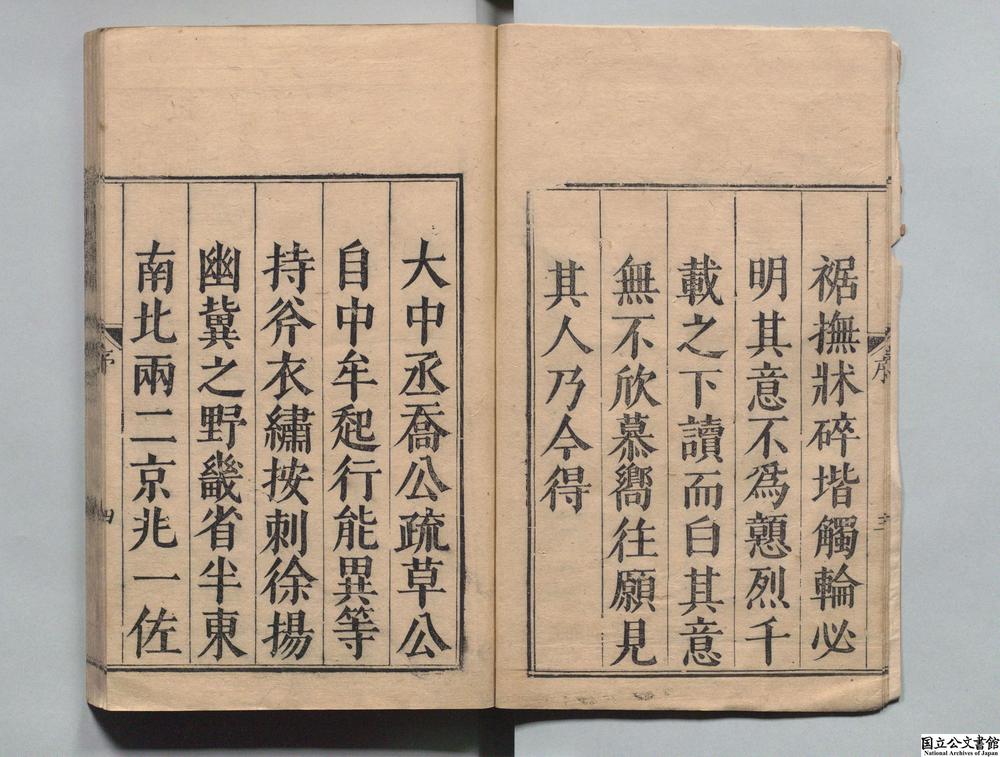 裾撫牀碎堦觸輪必
明其意不爲戅烈千
載之下讀而白其意
無不欣慕嚮往願見
其人乃今得
序
大中丞喬公疏草公
自中牟起行能異等
持斧衣繡按刺徐揚
幽冀之野畿省半東
南北兩二京兆一佐
序
四
国立公文書館
National Archives of Japan